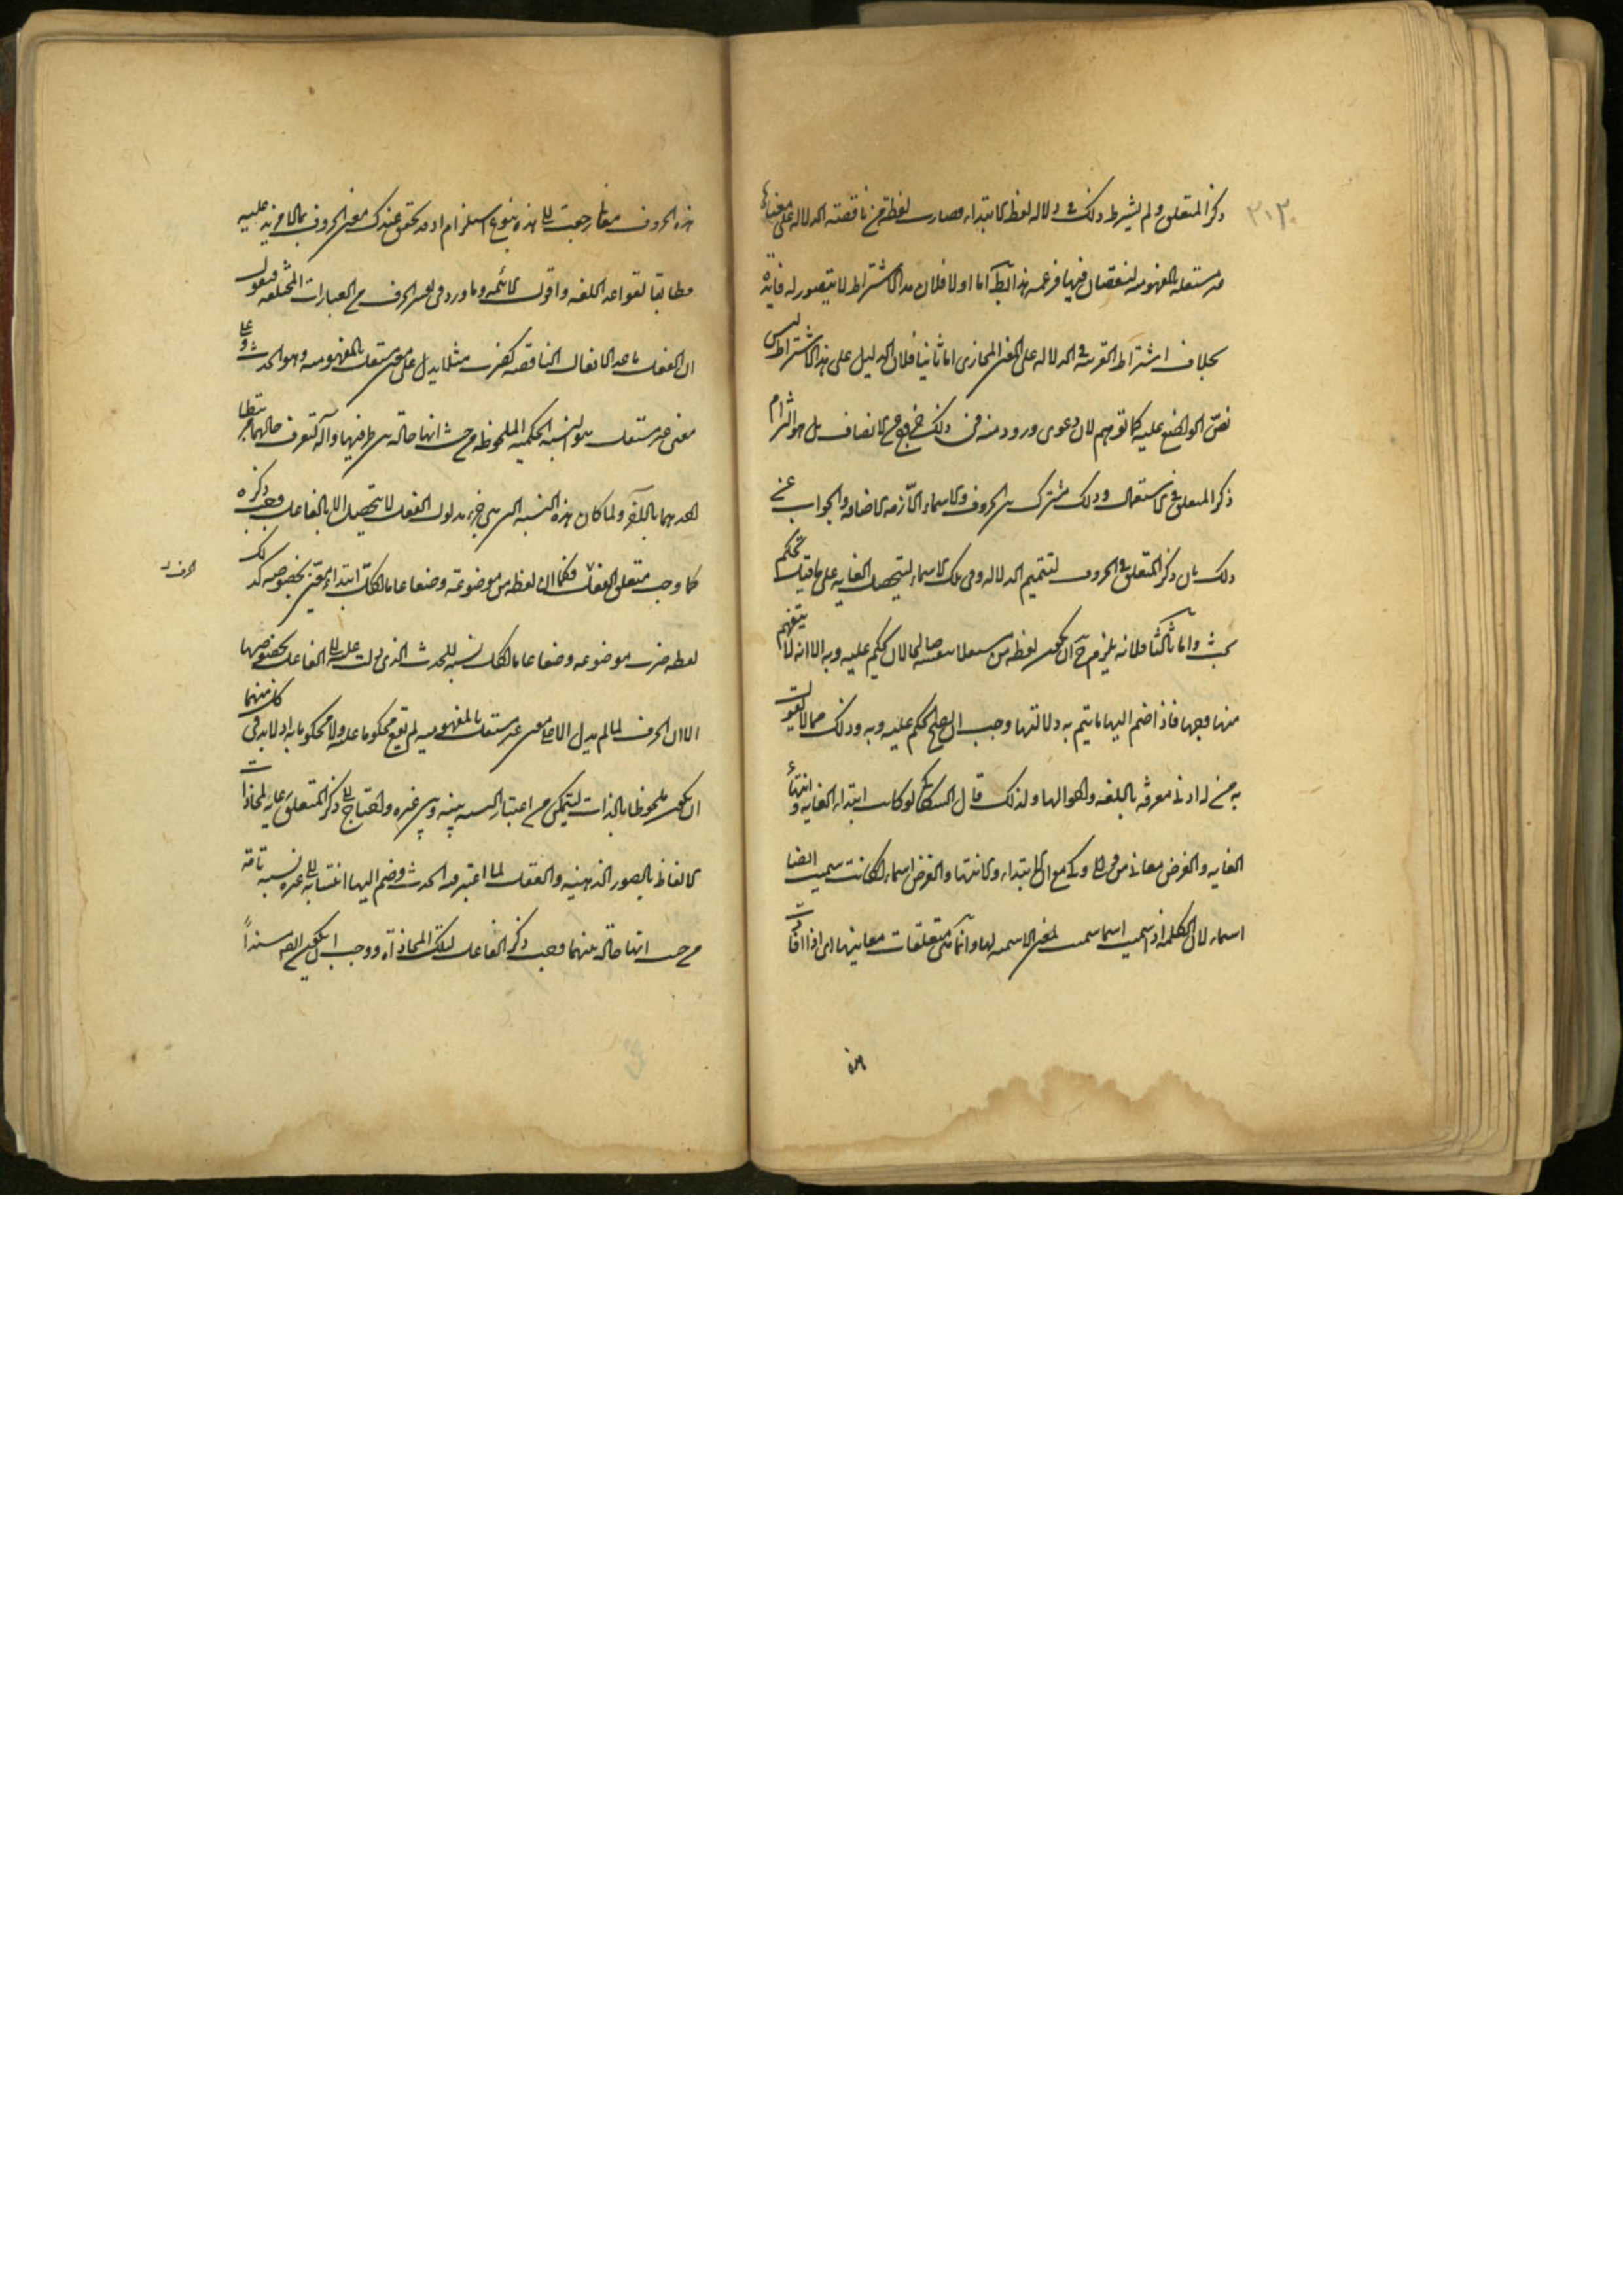 ٣١٣
ذكر المتعلق ولم يشترط ذلك في دلالة لفظ الابتداء فصارت لفظة من ناقصة الدلالة على معناها
غير مستقلة بالمفهومية لنقصان فيها فزعمه هذا باطل اما اولا فلان هذا الاشتراط لا يتصور له فائدة
بخلاف اشتراط القرينة في الدلالة على المعنى المجازى اما ثانيا فلان الدليل على هذا الاشتراط ليس
نص الواضع عليه كما توهم لان دعوى ورود نص في ذلك خروج عن الانصاف بل هو التزام
ذكر المتعلق في الاستعمال وذلك مشترك بين الحروف والاسماء اللازمة الاضافة والجواب عن
ذلك بان ذكر المتعلق في الحروف لتتميم الدلالة وفي تلك الاسماء لتحصيل الغاية على ما قيل تحكم
بحت واما ثالثا فلانه يلزم ح ان يكون لفظة من مستعلا صالحا لان يحكم عليه وبه الا انه لا يتفهم
منها وحدها فاذا ضم اليها ما يتم به دلالتها وجب ان يصلح للحكم عليه وبه وذلك مما لا يقول
به من له ادنى معرفة باللغة واحوالها ولذلك قال السكاكي لو كانت ابتداء الغاية وانتهاء
الغاية والغرض معاني من والى وكي مع ان الابتداء والانتهاء والغرض اسماء لكانت هي ايضا
اسماء لان الكلمة اذا سميت اسما سميت لمعنى الاسمية لها وانما هي متعلقات معانيها اى اذا افادت
هذه
هذه الحروف معاني رجعت الى هذه بنوع استلزام اذ قد تحقق عندك معنى الحروف بما لا مزيد عليه
مطابقا لقواعد اللغة واقوال الائمة وما ورد في تفسير الحرف من العبارات المختلفة فنقول
ان الفعل ما عدا الافعال الناقصة كضرب مثلا يدل على معنى مستقل بالمفهومية وهو الحدث وعلى
معنى غير مستقل هو النسبة الحكمية الملحوظة من حيث انها حالة بين طرفيها وآلة لتعرف حالهما مرتبطا
احدهما بالآخر ولما كان هذه النسبة التي هي جزء مدلول الفعل لا يتحصل الا بالفاعل وجب ذكره
كما وجب متعلق الفعل فكما ان لفظة من موضوعة وضعا عاما لكل ابتداء معين بخصوصه كذلك
الحرف
لفظة ضرب موضوعة وضعا عاما لكل نسبة للحدث الذى دلت عليه الى الفاعل بخصوصها
الا ان الحرف لما لم يدل الا على معنى غير مستقل بالمفهومية لم يقع محكوما عليه ولا محكوما به اذ لا بد في كل منهما
ان يكون ملحوظا بالذات ليتمكن من اعتبار النسبة بينه وبين غيره واحتاج الى ذكر المتعلق رعاية لمحاذات
الالفاظ بالصور الذهنية والفعل لما اعتبر فيه الحدث وضم اليها انتسابه الى غيره نسبة تامة
من حيث انها حالة بينهما وجب ذكر الفاعل لتلك المحاذاة ووجب ايضا ان يكون مسندا